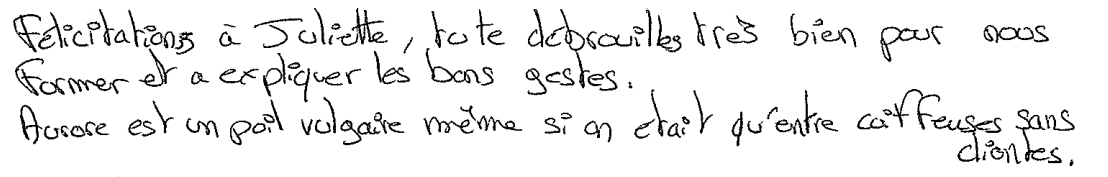 Félicitations à Juliette, tu te debrouilles très bien pour nous
former et a expliquer les bons gestes.
Aurore est un poil vulgaire même si on etait qu'entre coiffeuses sans
clientes.